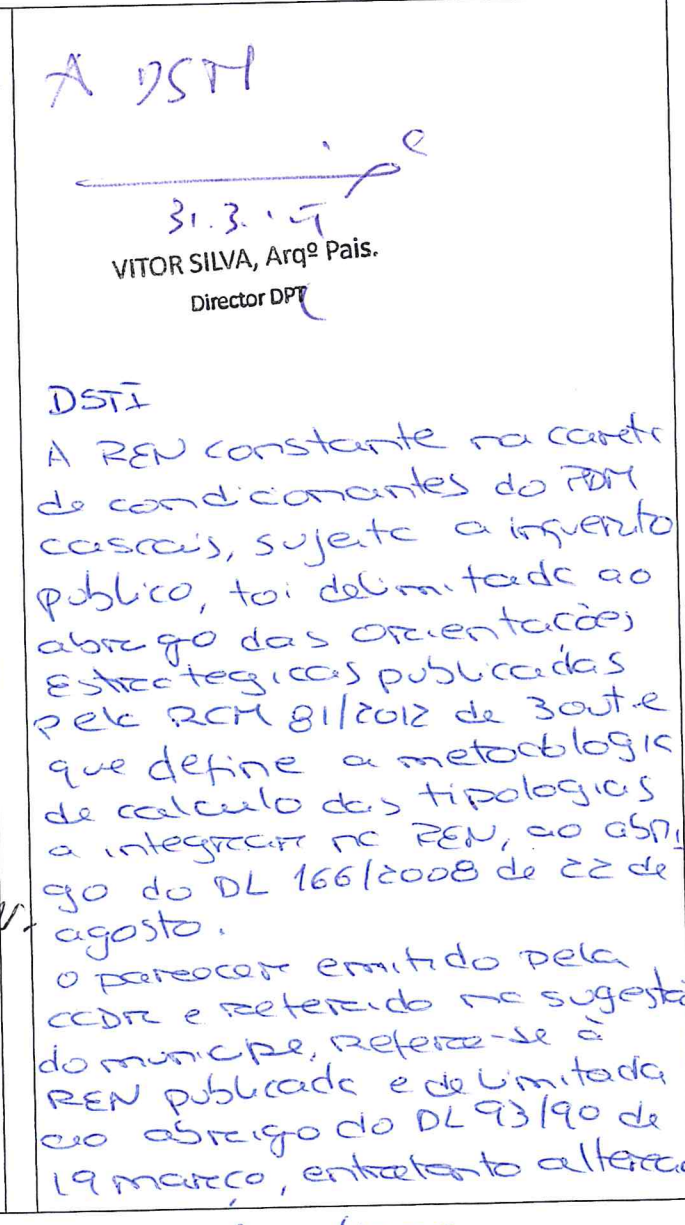 A DSTI
31.3.15
VITOR SILVA, Arqº Pais.
Director DPT
DSTI
A REN constante na carta
de condicionantes do PDM
cascais, sujeita a inquerito
publico, foi delimitada ao
abrigo das orientações
Estrategicas publicadas
pela RCM 81/2012 de 3 out. e
que define a metodologia
de calculo das tipologias
a integrar na REN, ao abri
go do DL 166/2008 de 22 de
agosto.
O parecer emitido pela
CCDR e referido na sugestã
do municipe, refere-se à
REN publicada e delimitada
ao abrigo do DL 93/90 de
19 março, entretanto altera